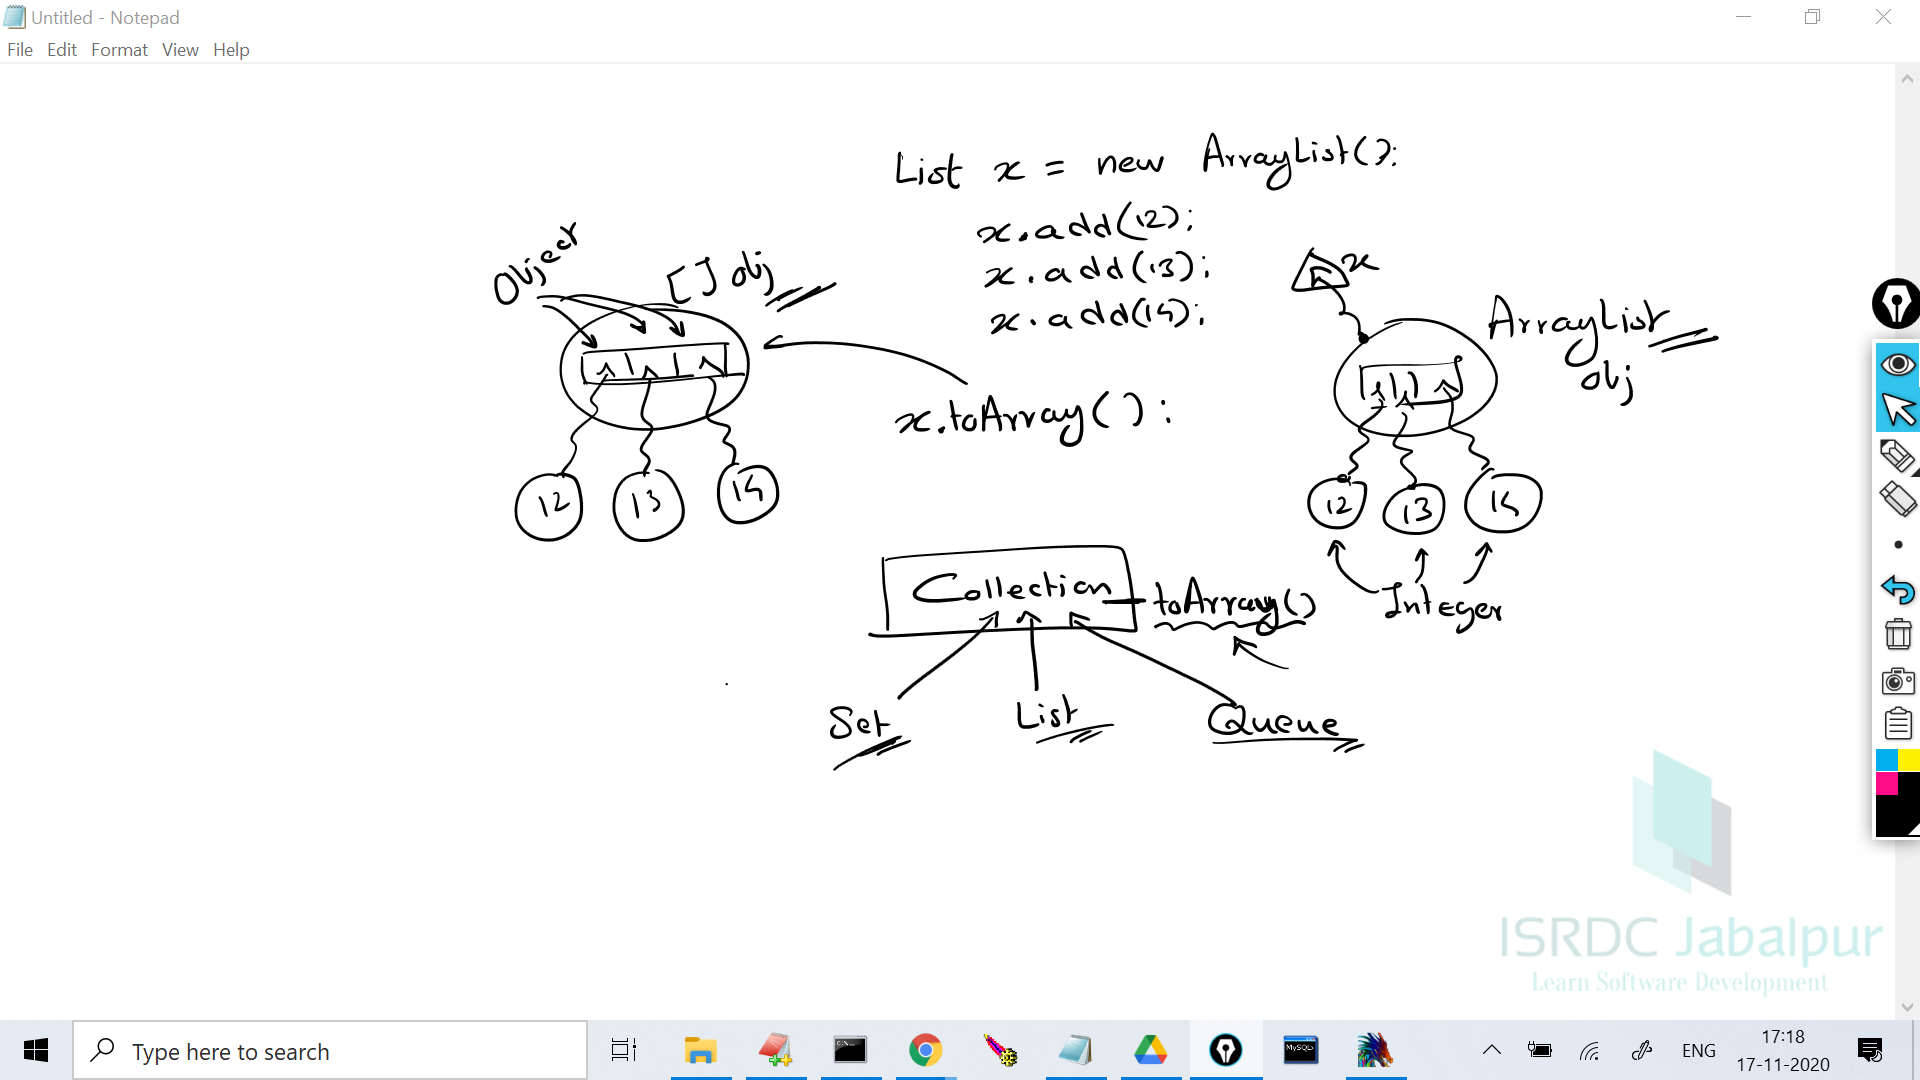 Untitled - Notepad
File Edit Format View Help
List x = new ArrayList();
x.add(12);
x.add(13);
x.add(14);
Object
[] obj
x
ArrayList
obj
x.toArray();
12 13 14
12 13 14
Integer
Collection
toArray()
Set List Queue
ISRDC Jabalpur
Learn Software Development
Type here to search
MySQL
ENG
17:18
17-11-2020